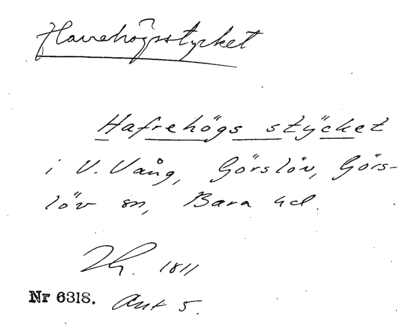 Havrehögsstycket
Hafrehögs stÿcket
i V. Vång, Görslöv, Görs-
löv sn, Bara hd.
Lh. 1811
Nr 6318. Akt 5.